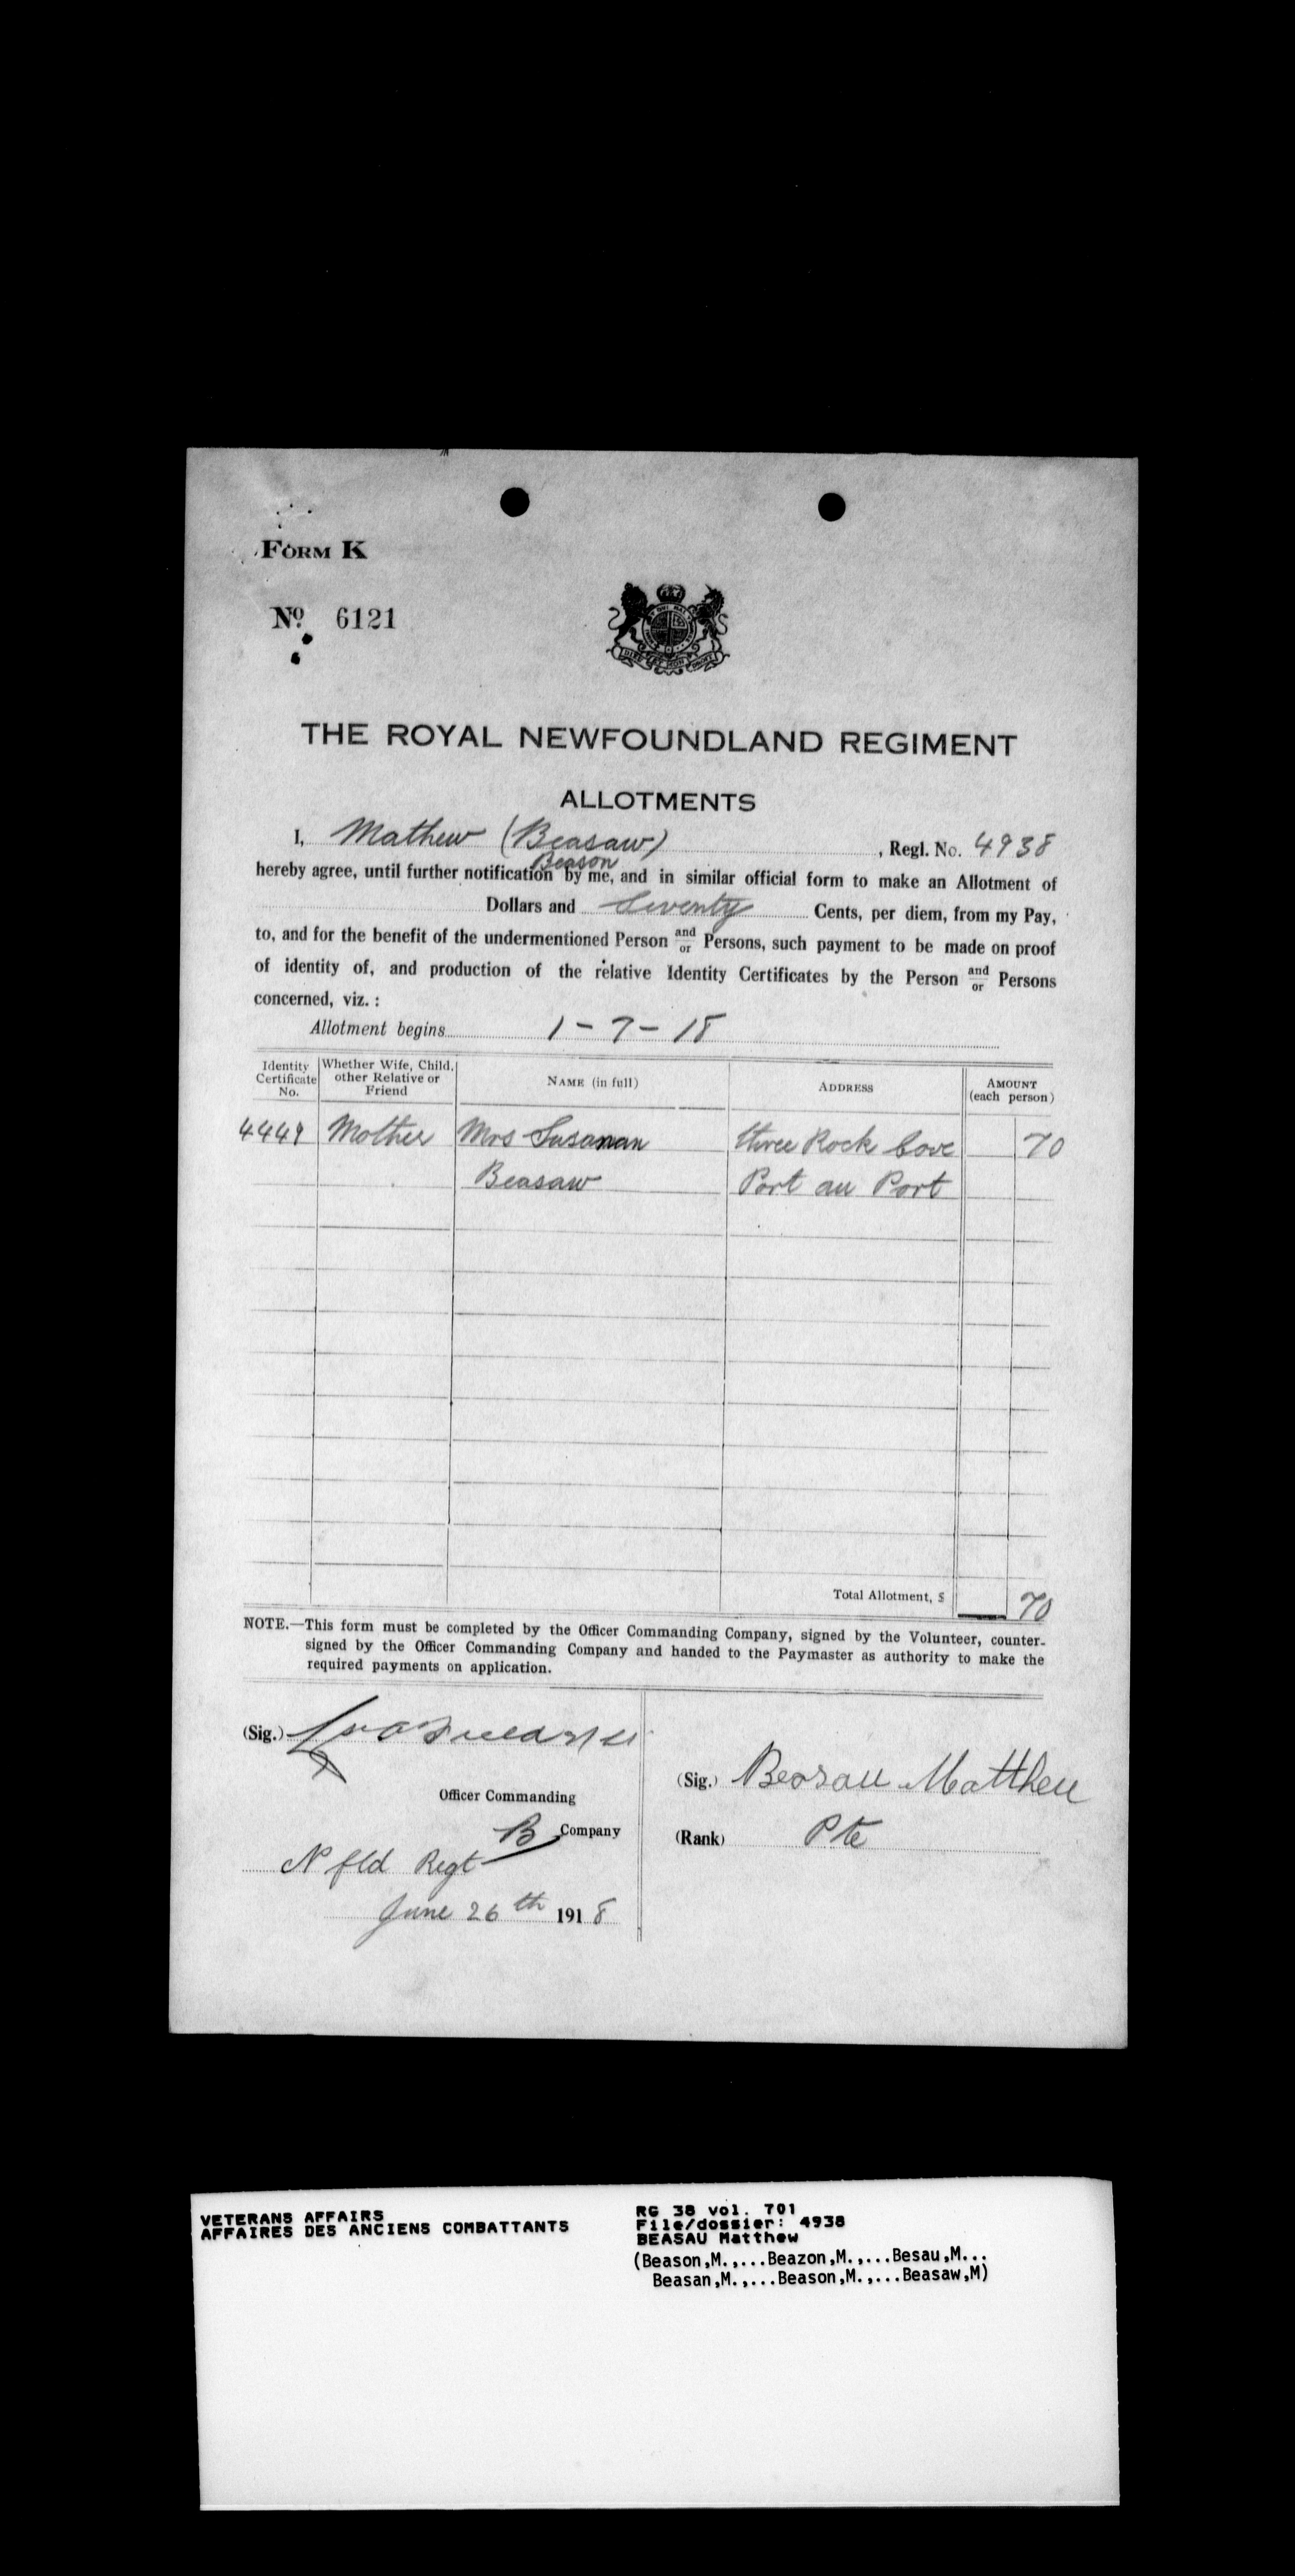 FORM K
No. 6121
THE ROYAL NEWFOUNDLAND REGIMENT
ALLOTMENTS
I, Mathew (Beasaw) , Regl. No. 4938
Beason
hereby agree, until further notification by me, and in similar official form to make an Allotment of
Dollars and Seventy Cents, per diem, from my Pay,
to, and for the benefit of the undermentioned Person and/or Persons, such payment to be made on proof
of identity of, and production of the relative Identity Certificates by the Person and/or Persons
concerned, viz. :
Allotment begins 1 - 7 - 18
Identity Certificate No. Whether Wife, Child, other Relative or Friend NAME (in full) ADDRESS AMOUNT (each person)
4449 Mother Mrs Susanan three Rock Cove 70
Beasaw Port au Port
Total Allotment, $ 70
NOTE.—This form must be completed by the Officer Commanding Company, signed by the Volunteer, counter-
signed by the Officer Commanding Company and handed to the Paymaster as authority to make the
required payments on application.
(Sig.)
Officer Commanding
B Company
Nfld Regt
June 26th 1918
(Sig.) Beasau Matthew
(Rank) Pte
VETERANS AFFAIRS
AFFAIRES DES ANCIENS COMBATTANTS
RG 38 vol. 701
File/dossier: 4938
BEASAU Matthew
(Beason,M.,...Beazon,M.,...Besau,M...
Beasan,M.,...Beason,M.,...Beasaw,M)